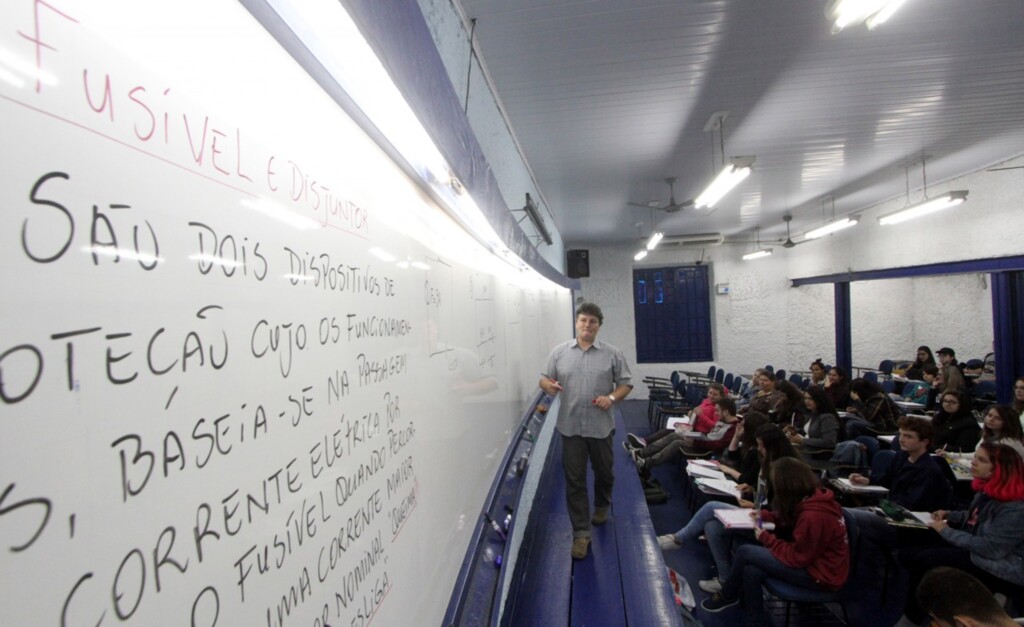 FUSÍVEL E DISJUNTOR
SÃO DOIS DISPOSITIVOS DE
OTEÇÃO CUJO OS FUNCIONAMEN-
S, BÁSEIA-SE NA PASSAGEM
CORRENTE ELÉTRICA POR
O FUSÍVEL QUANDO PERCOR-
UMA CORRENTE MAIOR
OR NOMINAL "QUEIMA"
ESLIGA"